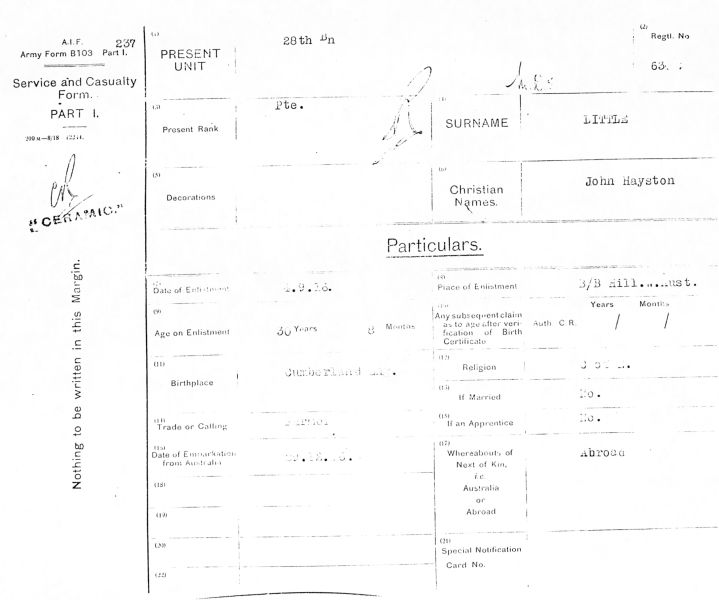 A.I.F. 237
Army Form B103 Part I.
Service and Casualty
Form.
PART I.
"CERAMIC."
Nothing to be written in this Margin.
(1)
PRESENT
UNIT
28th Bn
(2)
Regtl. No
63
(3)
Present Rank
Pte.
(4)
SURNAME
LITTLE
(5)
Decorations
(6)
Christian
Names.
John Hayston
Particulars.
Date of Enlistment
.9.18.
(8)
Place of Enlistment
B/B Hill.
(9)
Age on Enlistment
30 Years 8 Months
Any subsequent claim
as to age after veri-
fication of Birth
Certificate
Auth C.R.
Years Months
/ /
(11)
Birthplace
Cumberland
(12)
Religion
(13)
If Married
No.
(14)
Trade or Calling
(15)
If an Apprentice
No.
Date of Embarkation
from Australia
(17)
Whereabouts of
Next of Kin,
i.e.
Australia
or
Abroad
Abroad
(18)
(19)
(20)
(21)
Special Notification
Card No.
(22)